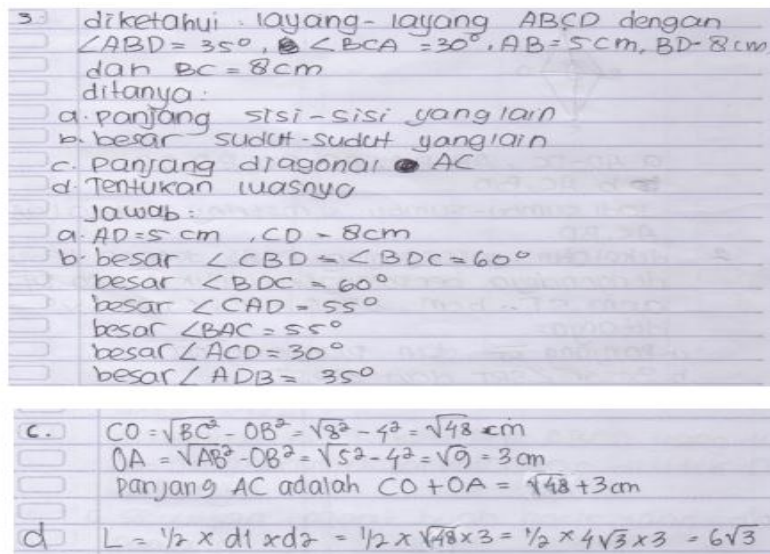 3 diketahui layang-layang ABCD dengan
∠ABD = 35°, ∠BCA = 30°, AB = 5 cm, BD- 8 cm
dan BC = 8 cm
ditanya:
a. panjang sisi-sisi yang lain
b. besar sudut-sudut yang lain
c. panjang diagonal AC
d. Tentukan luasnya
Jawab:
a. AD = 5 cm , CD - 8 cm
b. besar ∠CBD = ∠BDC = 60°
besar ∠BDC = 60°
besar ∠CAD = 55°
besar ∠BAC = 55°
besar ∠ACD = 30°
besar ∠ADB = 35°
c. CO = √BC² - OB² = √8² - 4² = √48 cm
OA = √AB² - OB² = √5² - 4² = √9 = 3 cm
Panjang AC adalah CO + OA = √48 + 3 cm
d L = 1/2 x d1 x d2 = 1/2 x √48 x 3 = 1/2 x 4√3 x 3 = 6√3